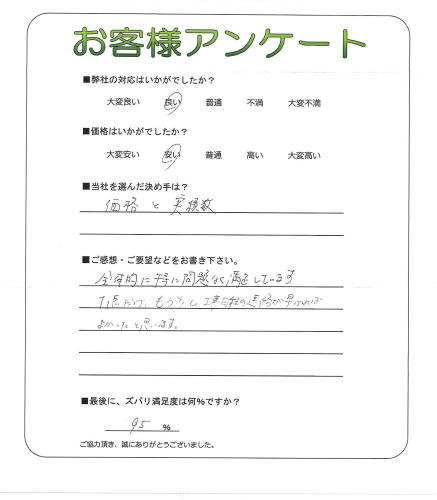 お客様アンケート
■弊社の対応はいかがでしたか?
大変良い 良い 普通 不満 大変不満
■価格はいかがでしたか?
大変安い 安い 普通 高い 大変高い
■当社を選んだ決め手は?
価格と実績数
■ご感想・ご要望などをお書き下さい。
全体的に特に問題なく満足しています
1点だけ、もう少し工事日程の連絡が早ければ
よかったと思います。
■最後に、ズバリ満足度は何%ですか?
95 %
ご協力頂き、誠にありがとうございました。